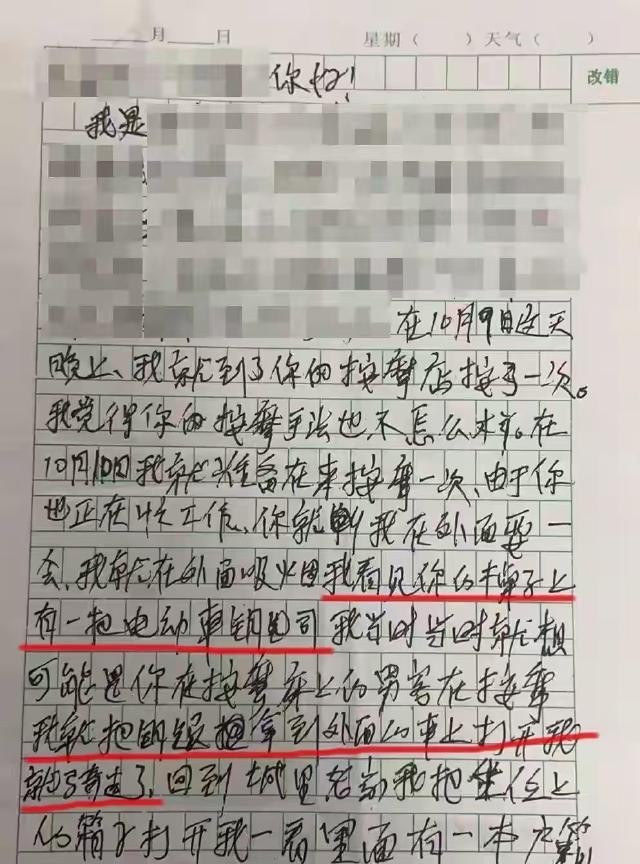 月 日 星期（ ）天气（ ）
改错
你好!
我是
在10月9日这天
晚上、我就到了你的按摩店按了一次。
我觉得你的按摩手法也不怎么本事。在
10月10日我就准备在来按摩一次、由于你
也正在忙工作、你就叫我在外面耍一
会、我就在外面吸烟我看见你的桌子上
有一把电动车钥匙 我当时当时就想
可能是你在按摩床上的男客在按摩
我就把钥匙拿到外面的车上打开我
就骑走了、回到城里 我把坐位上
的箱子打开我一看里面有一本